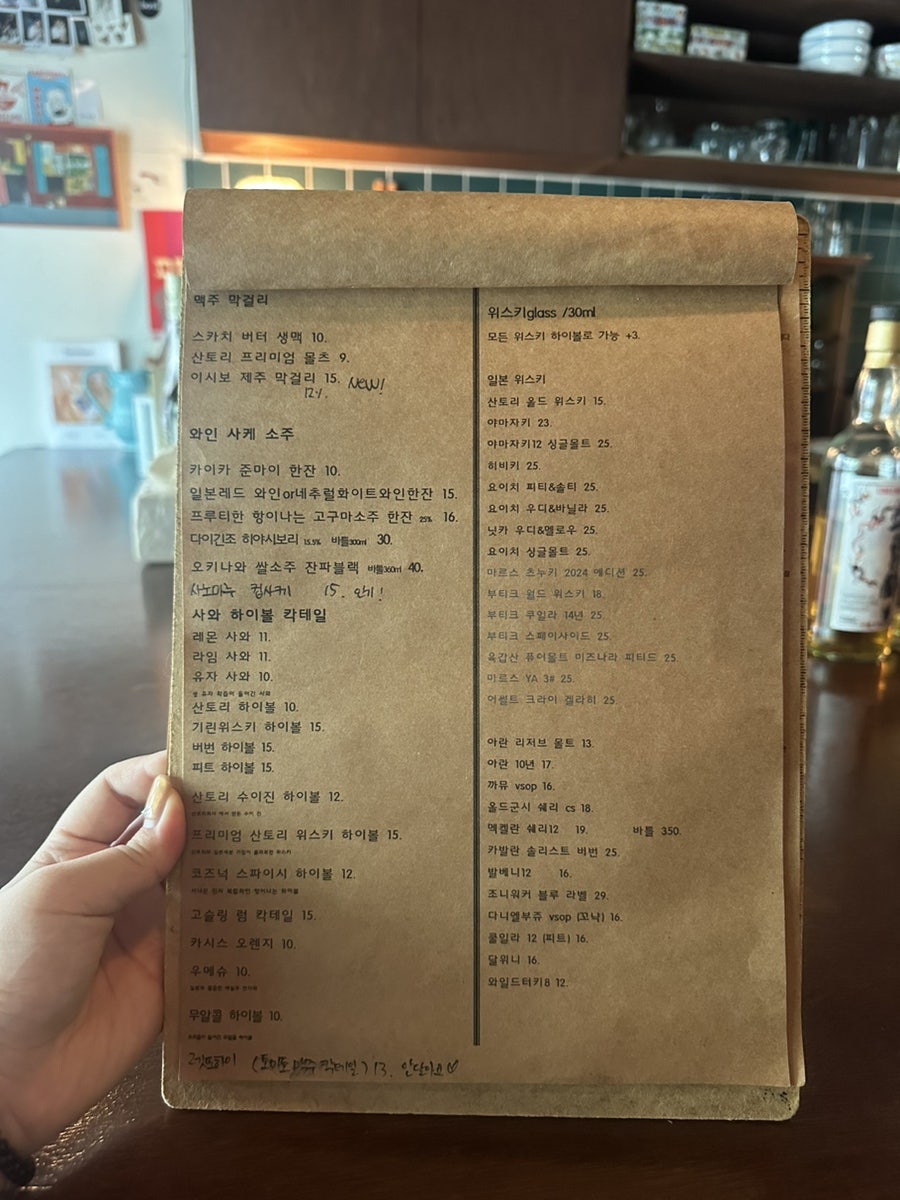 맥주 막걸리
스카치 버터 생맥 10.
산토리 프리미엄 몰츠 9.
이시보 제주 막걸리 15. New!
12%.
와인 사케 소주
카이카 준마이 한잔 10.
일본레드 와인or네추럴화이트와인한잔 15.
프루티한 향이나는 고구마소주 한잔 25% 16.
다이긴조 히야시보리 15.5% 바틀300ml 30.
오키나와 쌀소주 잔파블랙 바틀360ml 40.
컵사케 15. 인기!
사와 하이볼 칵테일
레몬 사와 11.
라임 사와 11.
유자 사와 10.
산토리 하이볼 10.
기린위스키 하이볼 15.
버번 하이볼 15.
피트 하이볼 15.
산토리 수이진 하이볼 12.
프리미엄 산토리 위스키 하이볼 15.
코즈넉 스파이시 하이볼 12.
고슬링 럼 칵테일 15.
카시스 오렌지 10.
우메슈 10.
무알콜 하이볼 10.
(토마토 맥주 칵테일) 13. 안달아요♡
위스키glass /30ml
모든 위스키 하이볼로 가능 +3.
일본 위스키
산토리 올드 위스키 15.
야마자키 23.
야마자키12 싱글몰트 25.
히비키 25.
요이치 피티&솔티 25.
요이치 우디&바닐라 25.
닛카 우디&멜로우 25.
요이치 싱글몰트 25.
마르스 츠누키 2024 에디션 25.
부티크 월드 위스키 18.
부티크 쿠일라 14년 25.
부티크 스페이사이드 25.
육갑산 퓨어몰트 미즈나라 피티드 25.
마르스 YA 3# 25.
어썰트 크라이 겔라히 25.
아란 리저브 몰트 13.
아란 10년 17.
까뮤 vsop 16.
올드군시 쉐리 cs 18.
멕켈란 쉐리12 19. 바틀 350.
카발란 솔리스트 버번 25.
발베니12 16.
조니워커 블루 라벨 29.
다니엘부쥬 vsop (꼬냑) 16.
쿨일라 12 (피트) 16.
달위니 16.
와일드터키8 12.